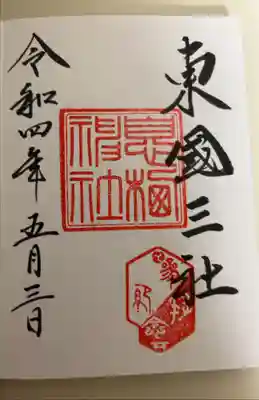 東國三社
息栖神社
令和四年五月三日